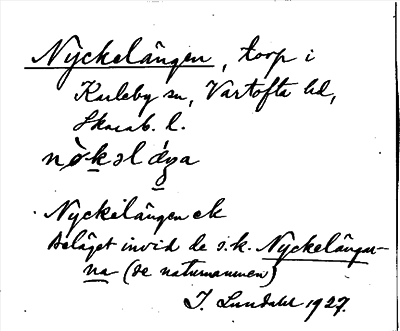 Nyckelängen, torp i
Karleby sn, Vartofta hd,
Skarab. l.
Nyckelängen ek
Beläget invid de s.k. Nyckelängar-
na (se naturnamnen)
J. Lundahl 1927.